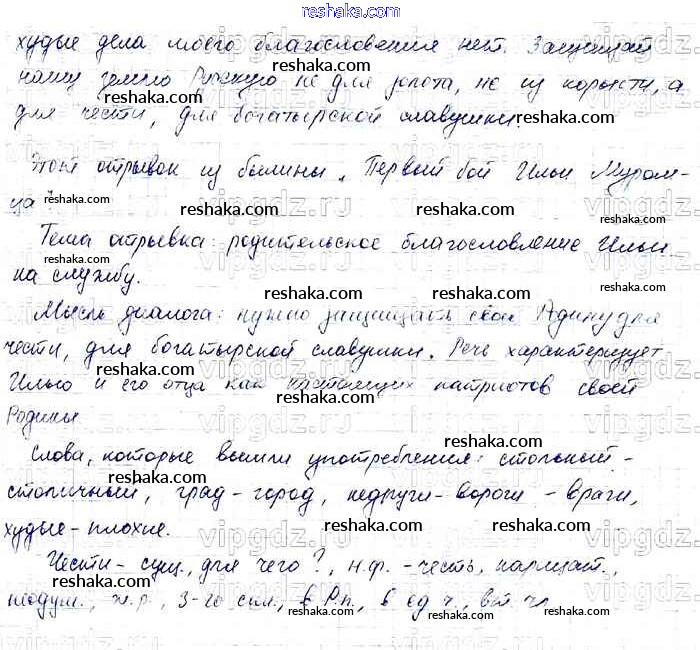 reshaka.com
худые дела моего благословения нет. Защищай
нашу землю Русскую не для золота, не из корысти, а
для чести, для богатырской славушки.
Этот отрывок из былины „Первый бой Ильи Муром-
ца".
Тема отрывка: родительское благословление Ильи
на службу.
Мысль диалога: нужно защищать свою Родину для
чести, для богатырской славушки. Речь характеризует
Илью и его отца как настоящих патриотов своей
Родины
Слова, которые вышли употребления: стольный -
столичный, град - город, недруги - вороги - враги,
худые - плохие.
Чести - сущ., для чего?, н.ф. - честь, нарицат.,
неодуш., ж.р., 3-го скл., в Р.п., в ед.ч., вт. чл.